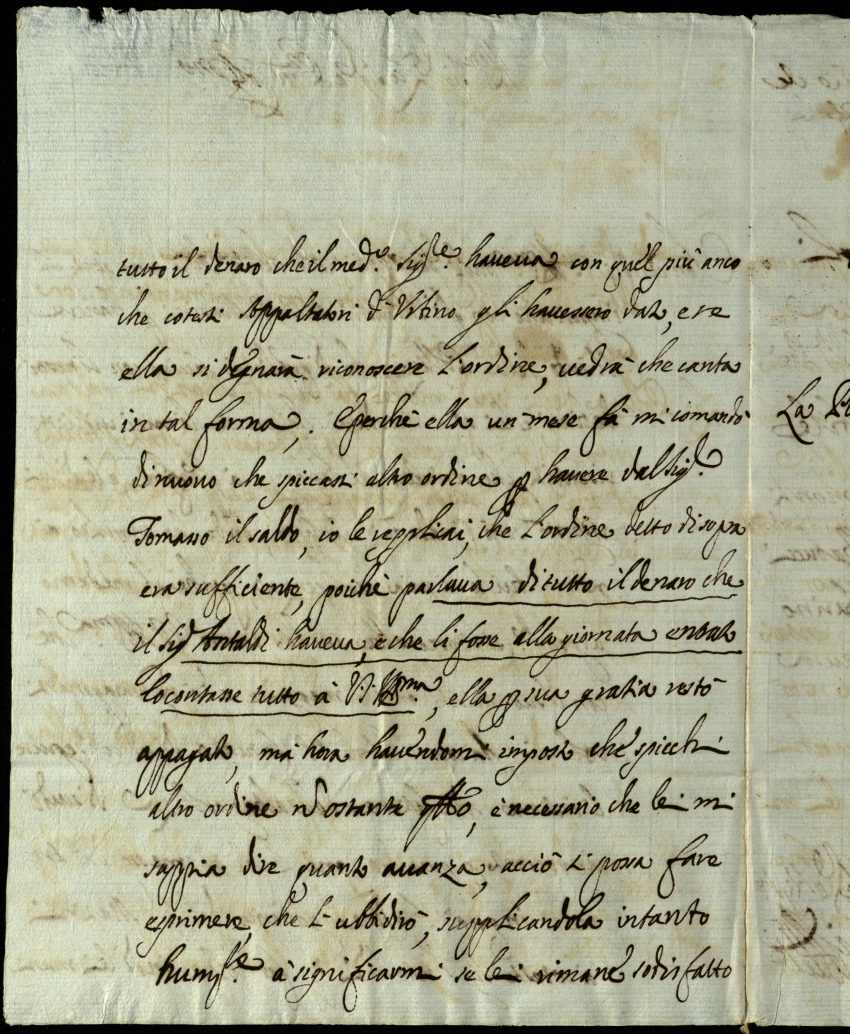 tutto il denaro che il med.º Sig.re haveva con quel più anco
che cotesti Appaltatori d'Urbino gli havessero dato, e se
ella si degnarà riconoscere l'ordine, vedrà che canta
in tal forma, . E perche ella un mese fà mi comandò
di nuovo che spiccassi altro ordine p havere dal Sig.r
Tomaso il saldo, io le replicai, che l'ordine detto di sopra
era sufficiente, poiche parlava di tutto il denaro che
il Sig Antaldi haveva, e che li fosse alla giornata entrato
lo contasse tutto à V.S. Ill.ma, ella p sua gratia restò
appagato, mà hora havendomi imposto che spicchi
altro ordine nō ostante qsto, è necessario che lei mi
sappia dire quanto avanza, acciò si possa fare
esprimere, che l'ubbidirò, supplicandola intanto
hum.te à significarmi se lei rimane sodisfatto
La